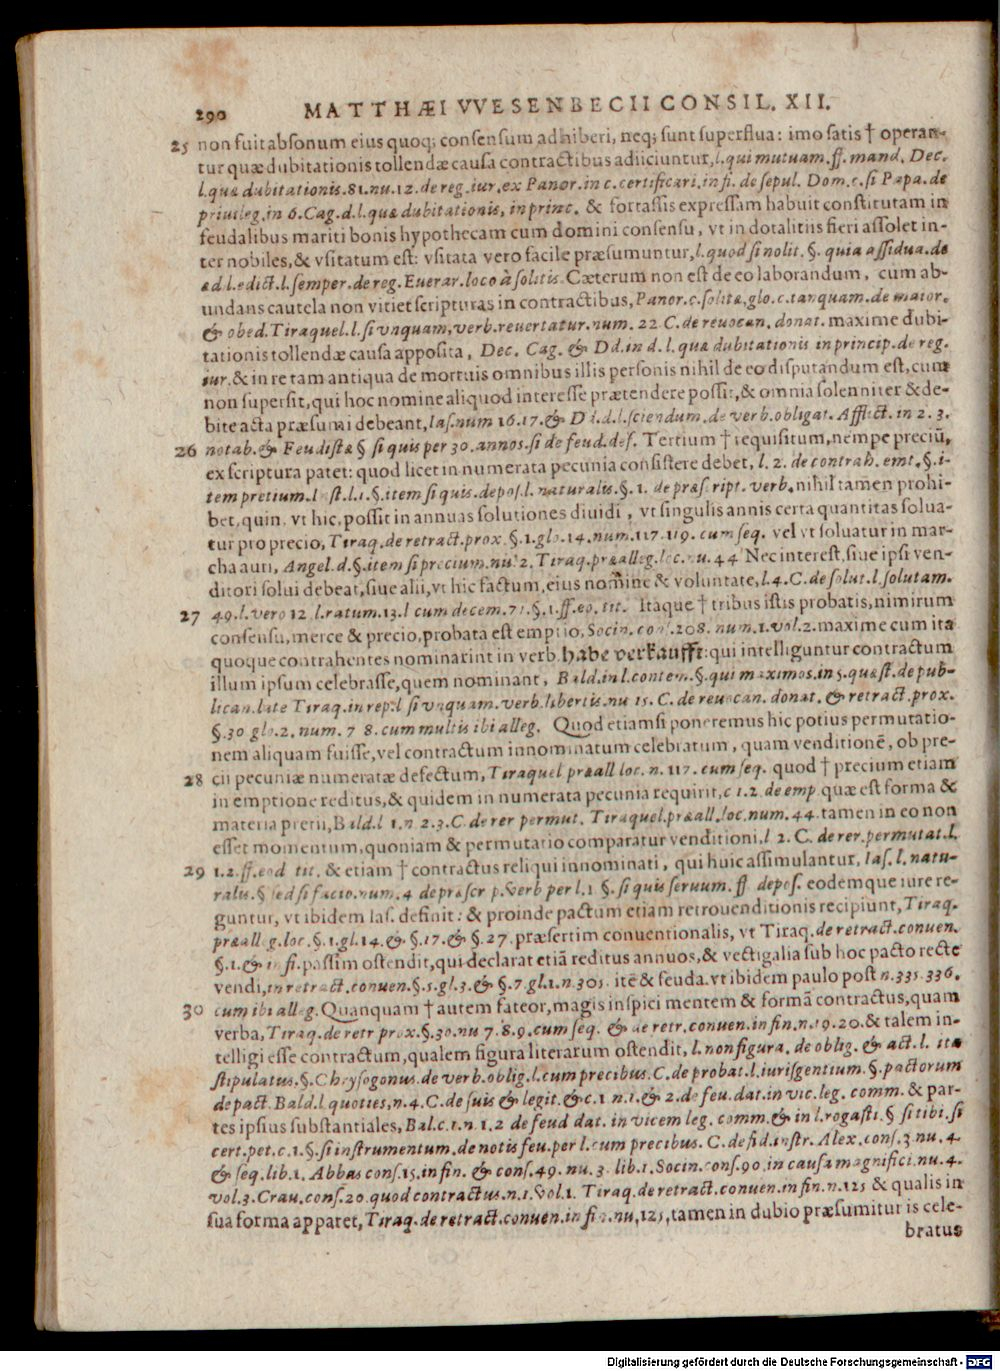 290 MATTHÆI VVESENBECII CONSIL. XII.
25 non fuit absonum eius quoq; consensum adhiberi, neq; sunt superflua: imo satis † operan-
tur quæ dubitationis tollendæ causa contractibus adiiciuntur, l. qui mutuam. ff. mand. Dec.
l. quæ dubitationis. 81. nu. 12. de reg. iur. ex Panor. in c. certificari. in fi. de sepul. Dom. c. si Papa. de
priuileg. in 6. Cag. d. l. quæ dubitationis, in princ. & fortassis expressam habuit constitutam in
feudalibus mariti bonis hypothecam cum domini consensu, vt in dotalitiis fieri assolet in-
ter nobiles, & vsitatum est: vsitata vero facile præsumuntur, l. quod si nolit. §. quia assidua. de
æd. l. edict. l. semper. de reg. Euerar. loco à solitis. Cæterum non est de eo laborandum, cum ab-
undans cautela non vitiet scripturas in contractibus, Panor. c. solitæ, glo. c. tanquam. de maior.
& obed. Tiraquel. l. si vnquam, verb. reuertatur. num. 22 C. de reuocan. donat. maxime dubi-
tationis tollendæ causa apposita, Dec. Cag. & Dd. in d. l. quæ dubitationis in princip. de reg.
iur. & in re tam antiqua de mortuis omnibus illis personis nihil de eo disputandum est, cum
non supersit, qui hoc nomine aliquod interesse prætendere possit, & omnia solenniter & de-
bite acta præsumi debeant, Ias. num 16. 17. & Dd. d. l. sciendum. de verb. obligat. Afflict. in 2. 3.
26 notab. & Feudistæ § si quis per 30. annos. si de feud. def. Tertium † requisitum, nempe preciū,
ex scriptura patet: quod licet in numerata pecunia consistere debet, l. 2. de contrah. emt. §. i-
tem pretium. Inst. l. 1. §. item si quis. depos. l. naturalis. §. 1. de præscript. verb. nihil tamen prohi-
bet, quin, vt hic, possit in annuas solutiones diuidi, vt singulis annis certa quantitas solua-
tur pro precio, Tiraq. de retract. prox. §. 1. glo. 14. num. 117. 119. cum seq. vel vt soluatur in mar-
cha auri, Angel. d. §. item si precium. nu. 2, Tiraq. præalleg. loc. nu. 44 Nec interest, siue ipsi ven-
ditori solui debeat, siue alii, vt hic factum, eius nomine & voluntate, l. 4. C. de solut. l. solutam.
27 49. l. vero 12 l. ratum. 13. l cum decem. 71. §. 1. ff. eo. tit. Itaque † tribus istis probatis, nimirum
consensu, merce & precio, probata est emptio, Socin. cons. 208. num. 1. vol. 2. maxime cum ita
quoque contrahentes nominarint in verb. habe verkaufft: qui intelliguntur contractum
illum ipsum celebrasse, quem nominant, Bald. in l. contem. §. qui maximos. in 5. quæst. de pub-
lican. late Tiraq. in rep. l si vnquam. verb. libertis. nu 15. C. de reuocan. donat. & retract. prox.
§. 30 glo. 2. num. 7 8. cum multis ibi alleg. Quod etiamsi poneremus hic potius permutatio-
nem aliquam fuisse, vel contractum innominatum celebratum, quam venditionē, ob pre-
28 cii pecuniæ numeratæ defectum, Tiraquel præall loc. n. 117. cum seq. quod † precium etiam
in emptione reditus, & quidem in numerata pecunia requirit, c 1. 2. de emp quæ est forma &
materia pretii, Bald. l 1. n 2. 3. C. de rer permut. Tiraquel. præall. loc. num. 44. tamen in eo non
esset momentum, quoniam & permutatio comparatur venditioni, l 2. C. de rer. permutat. l.
29 1. 2. ff. eod tit. & etiam † contractus reliqui innominati, qui huic assimulantur, Ias. l. natu-
ralis. § sed si facio. num. 4 de præscr p. verb per l. 1 §. si quis seruum. ff depos. eodemque iure re-
guntur, vt ibidem Ias. definit: & proinde pactum etiam retrouenditionis recipiunt, Tiraq.
præall g. loc. §. 1. gl. 14. & §. 17. & § 27 præsertim conuentionalis, vt Tiraq. de retract. conuen.
§. 1. & in fi. passim ostendit, qui declarat etiā reditus annuos, & vectigalia sub hoc pacto recte
vendi, in retract. conuen. §. 5. gl. 3. & §. 7 gl. 1. n. 305. itē & feuda. vt ibidem paulo post n. 335. 336.
30 cum ibi alleg. Quanquam † autem fateor, magis inspici mentem & formā contractus, quam
verba, Tiraq. de retr prox. §. 30. nu 7. 8. 9. cum seq. & de retr. conuen. in fin. n. 19. 20. & talem in-
telligi esse contractum, qualem figura literarum ostendit, l. non figura. de oblig. & act. l. ita
stipulatus. §. Chrysogonus. de verb. oblig. l. cum precibus. C. de probat. l. iurisgentium. §. pactorum
de pact. Bald. l quoties, n. 4. C. de suis & legit. & c. 1 n. 1. & 2. de feu. dat. in vic. leg. comm. & par-
tes ipsius substantiales, Bal. c. 1. n. 1. 2 de feud dat. in vicem leg. comm. & in l. rogasti. § si tibi. si
cert. pet. c. 1. §. si instrumentum. de notis feu. per l. cum precibus. C. de fid. instr. Alex. cons. 3. nu. 4.
& seq. lib. 1. Abbas cons. 15. in fin. & cons. 49. nu. 3. lib. 1. Socin. cons. 90. in causa magnifici. nu. 4.
vol. 3. Crau. cons. 20. quod contractus. n. 1. vol. 1. Tiraq. de retract. conuen. in fin. n. 125 & qualis in
sua forma apparet, Tiraq. de retract. conuen. in fin. nu, 125, tamen in dubio præsumitur is cele-
bratus
Digitalisierung gefördert durch die Deutsche Forschungsgemeinschaft - DFG